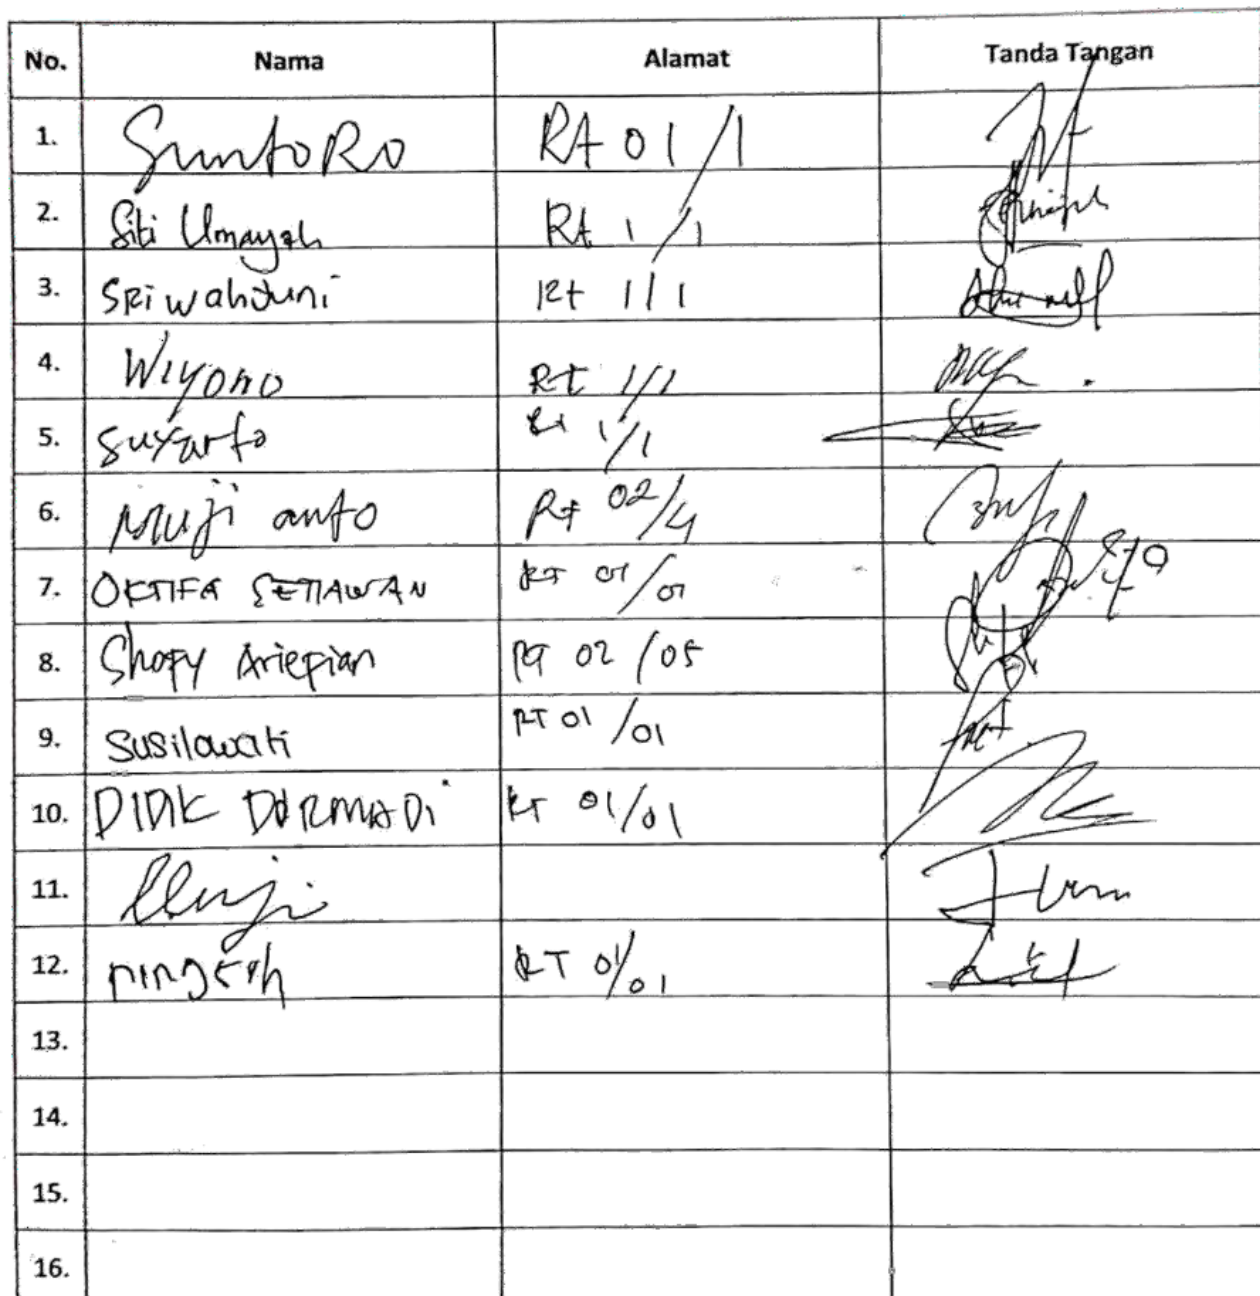 No. Nama Alamat Tanda Tangan
1. SuntoRo Rt 01/1
2. Siti Umayah Rt 1/1
3. SRi wahyuni Rt 1/1
4. Wiyono Rt 1/1
5. suyarto Rt 1/1
6. Muji anto Rt 02/4
7. OKTIFA SETIAWAN RT 01/01
8. Shofy Ariefian RT 02/05
9. Susilowati RT 01/01
10. DIDIK DARMADi RT 01/01
11.
12. ningsih RT 01/01
13.
14.
15.
16.